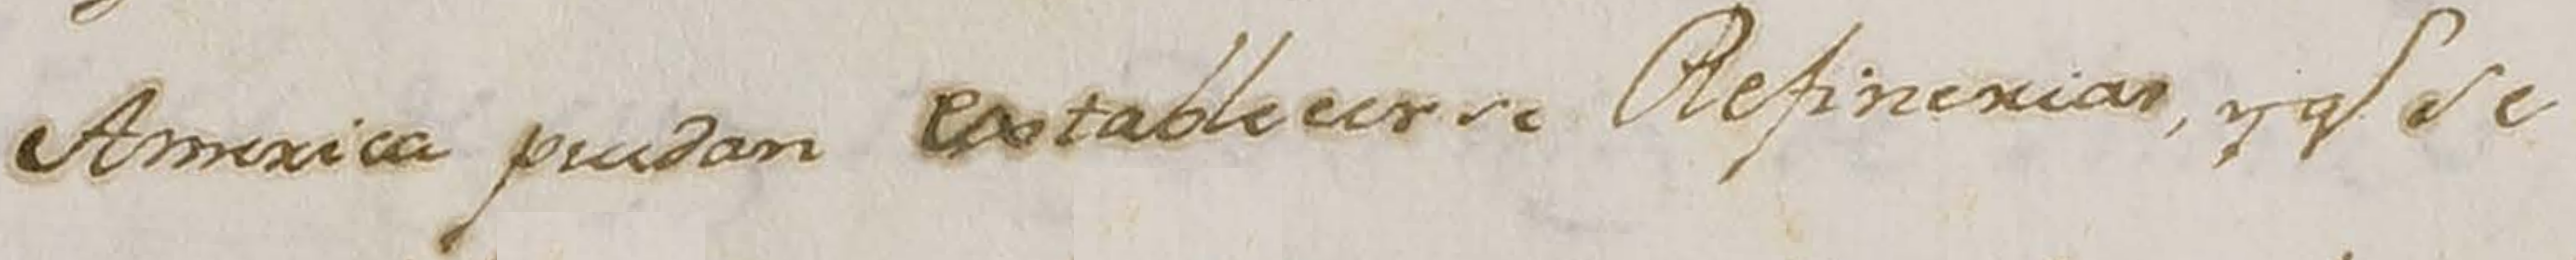 America puedan establecerse Refinerias, y q.e de